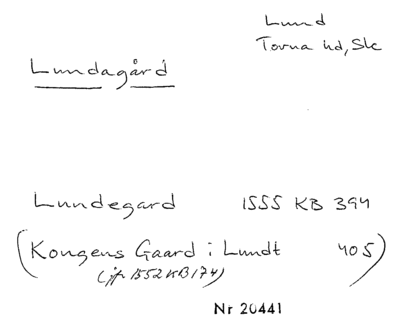 Lund
Torna hd, Sk
Lundagård
Lundegard 1555 KB 394
(Kongens Gaard i Lundt 405)
(jfr 1552 KB 174)
Nr 20441